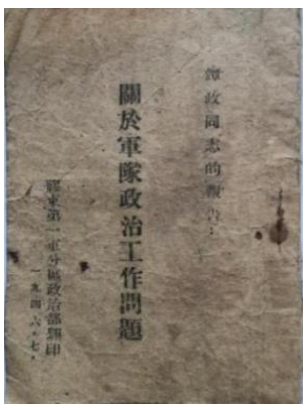 譚政同志的報告：
關於軍隊政治工作問題
膠東第一軍分區政治部翻印
一九四六·七·